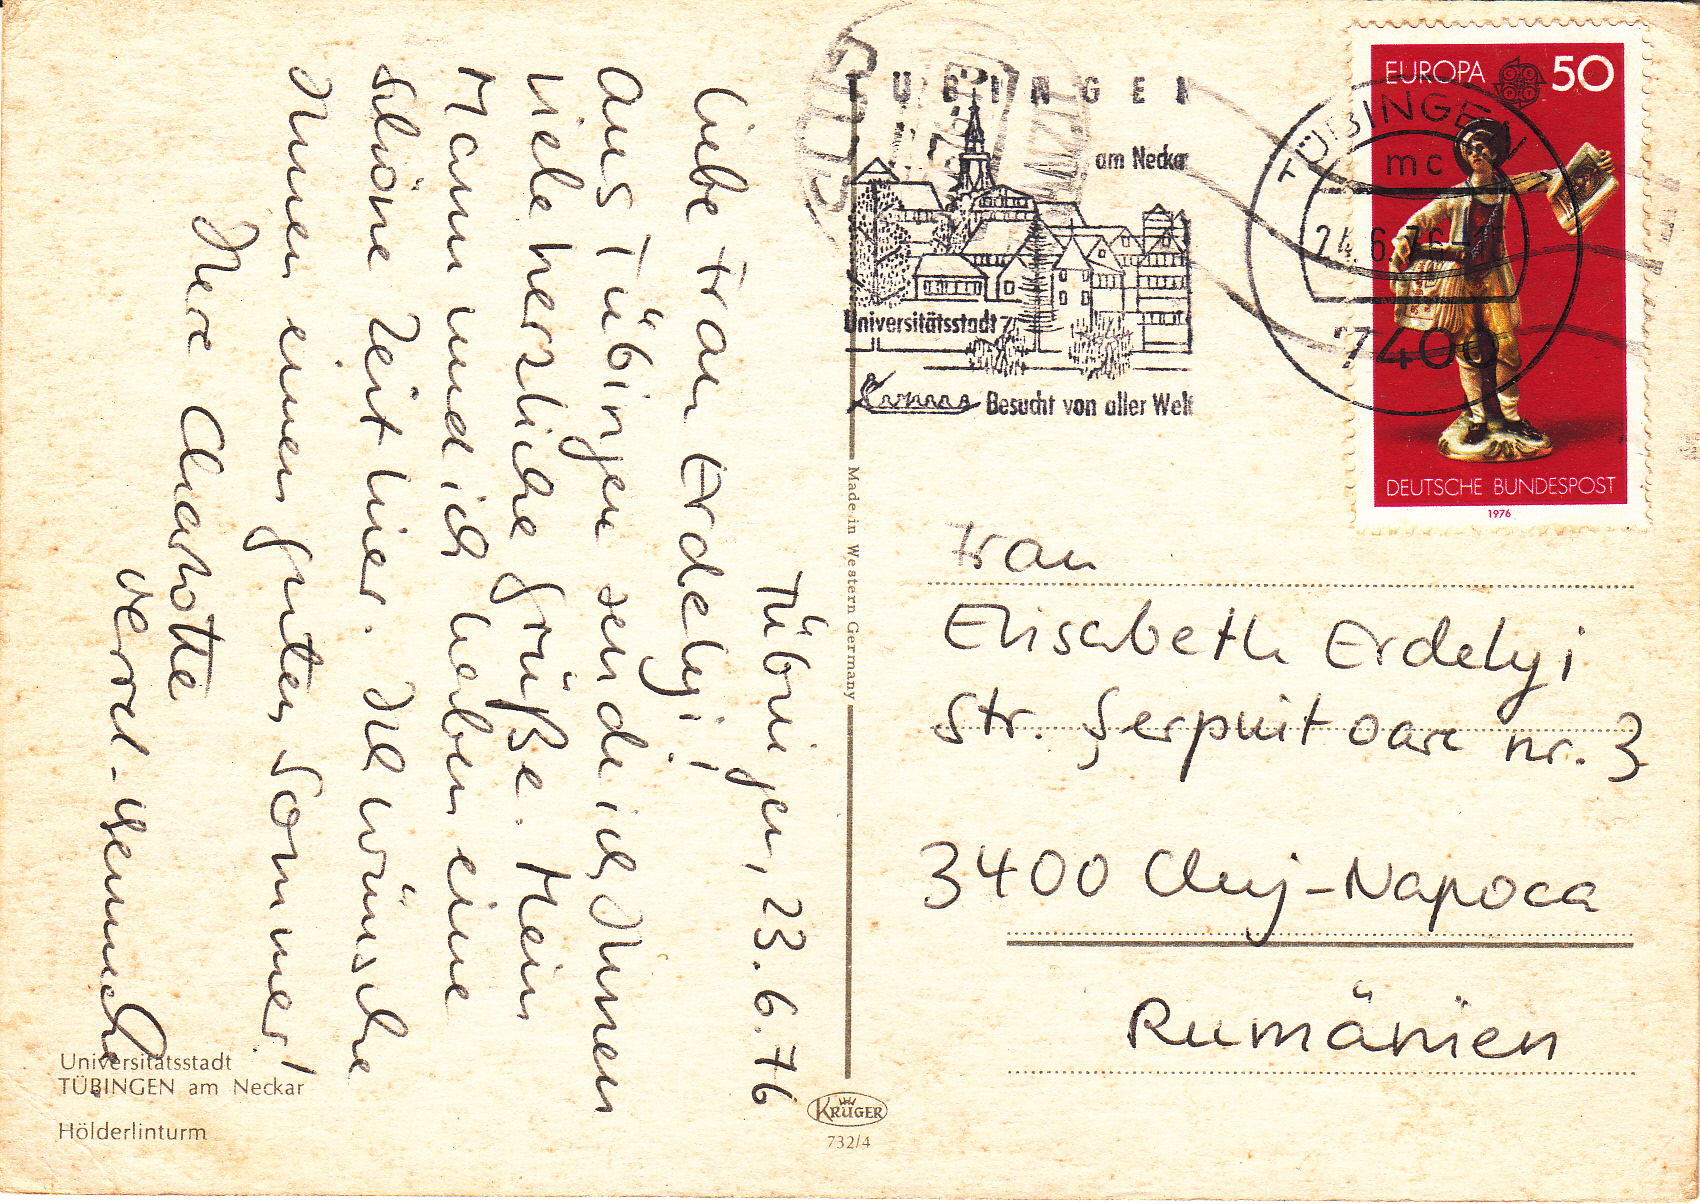 Tübingen, 23.6.76
Liebe Frau Erdelyi!
Aus Tübingen sende ich Ihnen
viele herzliche Grüße. Mein
Mann und ich haben eine
schöne Zeit hier. Ich wünsche
Ihnen einen guten Sommer!
Ihre Charlotte
Universitätsstadt
TÜBINGEN am Neckar
Hölderlinturm
Made in Western Germany
KRÜGER
732/4
TÜBINGEN
am Neckar
Universitätsstadt
Besucht von aller Welt
TÜBINGEN
mc
24.6.76
7400
EUROPA 50
DEUTSCHE BUNDESPOST
1976
Frau
Elisabeth Erdelyi
Str. Şerpuitoare nr. 3
3400 Cluj-Napoca
Rumänien